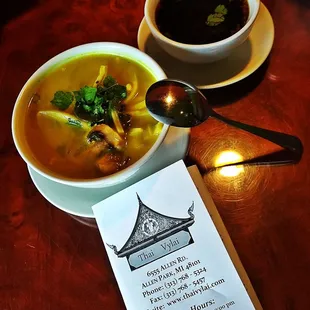 Thai Vylai
6555 Allen Rd.
Allen Park, MI 48101
Phone: (313) 768 - 5324
Fax: (313) 768 - 5457
www.thaivylai.com
Hours: